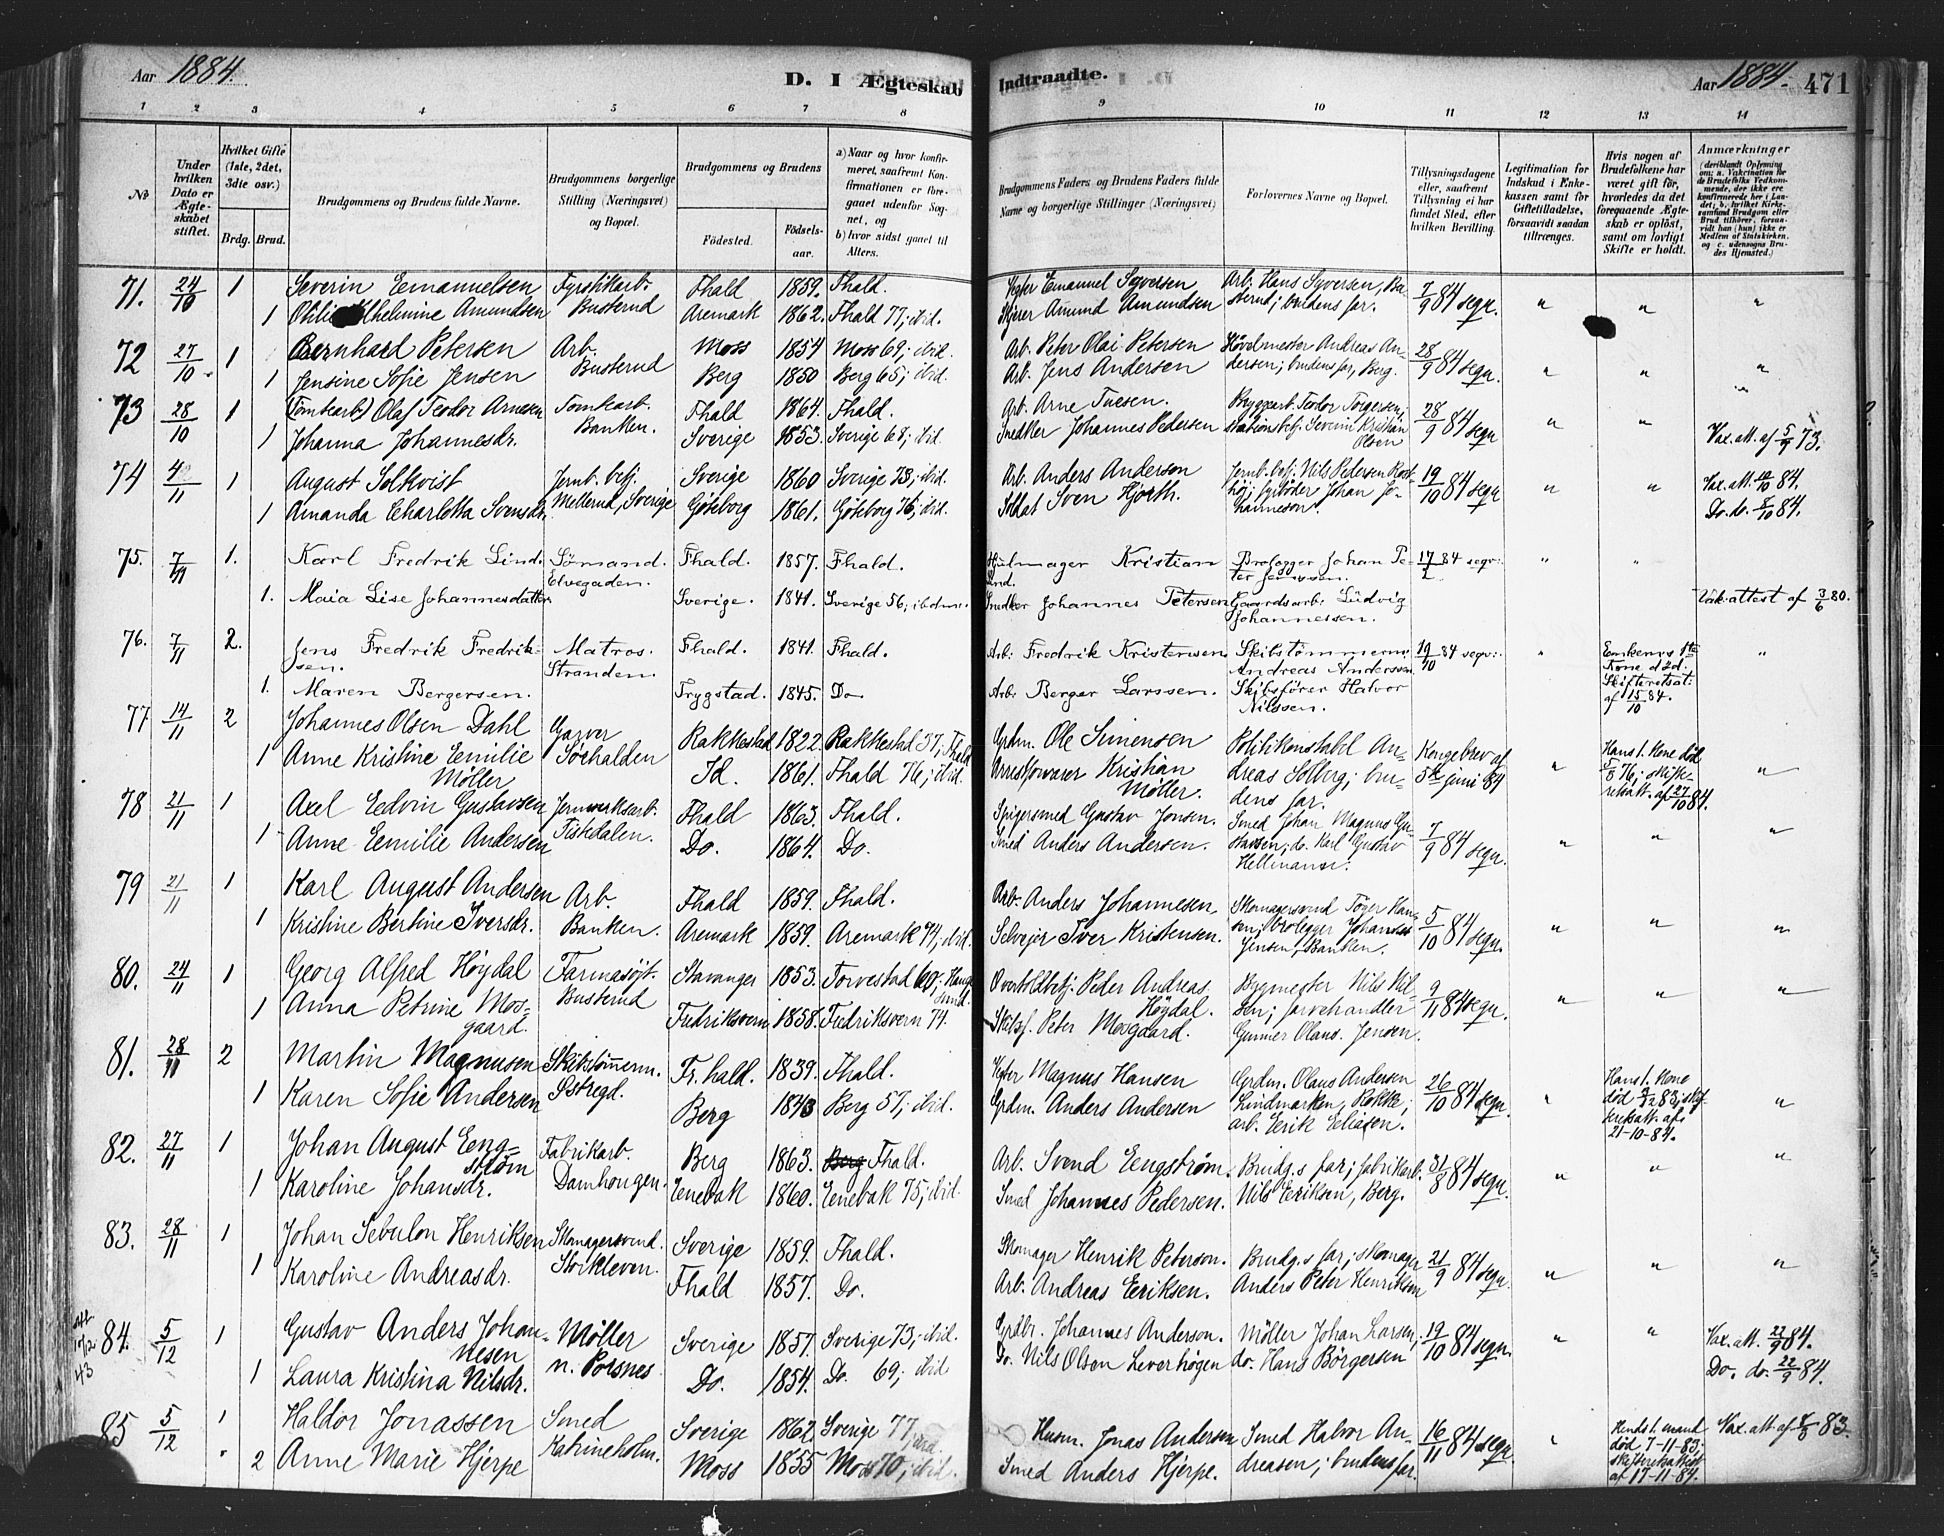 Aar 1884.
D. I Ægteskab Indtraadte.
Aar 1884. 471
1 2 3 4 5 6 7 8 9 10 11 12 13 14
No
Under hvilken Dato er Ægteskabet stiftet.
Hvilket Gifte (1ste, 2det, 3die osv.)
Brdg. Brud.
Brudgommens og Brudens fulde Navne.
Brudgommens borgerlige Stilling (Næringsvei) og Bopæl.
Brudgommens og Brudens
Fødested. Fødselsaar.
a) Naar og hvor konfirmeret, saafremt Konfirmationen er foregaaet udenfor Sognet, og
b) hvor sidst gaaet til Alters.
Brudgommens Faders og Brudens Faders fulde Navne og borgerlige Stillinger (Næringsvei)
Forlovernes Navne og Bopæl.
Tillysningsdagene eller, saafremt Tillysning ei har fundet Sted, efter hvilken Bevilling.
Legitimation for Indskud i Enkekassen samt for Giftetilladelse, forsaavidt saadan tiltrænges.
Hvis nogen af Brudefolkene har været gift før, hvorledes da det foregaaende Ægteskab er opløst, samt om lovligt Skifte er holdt.
Anmærkninger
71. 24/10 1 Severin Emanuelsen Fyrstikarb. Fhald 1859. Fhald. Vegter Emanuel Syversen Arb. Hans Syversen, Bu- 7/9 84 segv. " " "
1 Othilie Vilhelmine Amundsen Busterud Aremark 1862. Fhald 77; ibid. Skjærer Amund Amundsen sterud; brudens far.
72 27/10 1 Bernhard Petersen Arb. Moss 1854 Moss 69; ibid. Arb. Peter Olai Petersen Hövdmester Andreas An- 28/9 84 segv. " " "
1 Jensine Sofie Jensen Busterud Berg 1850 Berg 65; ibid. Arb. Jens Andersen dersen; brudens far, Berg.
73 28/10 1 (Tomtearb.) Olaf Teodor Arnesen Tomtearb. Fhald 1864. Fhald. Arb. Arne Tuesen. Byggearb. Teodor Torgersen, 28/9 84 segv " "
1 Johanna Johannesdr. Banken. Sverige 1853. Sverige 68; ibid. Snedker Johannes Pedersen stationsbetj. Severin Kristian Olsen Vax. att. af 5/9 73.
74 4/11 1 August Solkvist Jernb. betj. Sverige 1860 Sverige 73; ibid. Arb. Anders Anderson Jernb. betj. Nils Pedersen 19/10 84 segv " " Vax. att. 10/10 84.
1 Amanda Charlotta Svensdr. Mellerud, Sverige Göteborg 1861. Göteborg 76; ibid. Soldat Sven Hjorth. fyrböder Johan Jo- hanneson. Do. do. 8/10 84.
75. 7/11 1. Karl Fredrik Lind. Sømand. Fhald. 1857. Fhald. Hjulmager Kristian Lind. Brolægger Johan Pe- ter Jenssen. 17/2 84 segv: " "
1. Maia Lise Johannesdatter Elvegaden. Sverige. 1841. Sverige 56; ibdm. Snedker Johannes Petersen Gaardsarb: Ludvig Johannessen. Vak: attest af 3/6 80.
76. 7/11 2. Jens Fredrik Fredrik- sen. Matros. Fhald. 1841. Fhald. Arb: Fredrik Kristensen Skibstømmerm: Andreas Andersen 19/10 84 segv: " Enkem: 1ste Kone d 2d. Skifteretsat: af 15/10 84. "
1. Maren Bergersen. Stranden. Trygstad. 1845. Do Arb: Berger Larssen. Skibsfører Halvor Nilssen.
77 14/11 2 Johannes Olsen Dahl Garver Rakkestad 1822 Rakkestad 37; Fhald Grdm. Ole Simensen Politikonstabel An- Kongebrev af " Hans 1. kone død
1 Anne Kristine Emilie Møller Søehalden Id. 1861. Fhald 76; ibid. Arrestforvarer Kristian Møller. dreas Solberg; bru- dens far. 5te juni 84 5/8 76; skifte- retsatt. af 27/10 84. "
78 21/11 1 Axel Edvin Gustavsen Jernverksarb. Fhald 1863. Fhald. Spigersmed Gustav Jonsen. Smed Johan Magnus Gu- 7/9 84 segv. " " "
1 Anne Emilie Andersen Fiskedalen. Do. 1864. Do. Smed Anders Andersen. stavsen; do. Karl Gustav Hellmann.
79 21/11 1 Karl August Andersen Arb. Fhald 1859. Fhald. Arb. Anders Johannesen Skomagersvend Töger Han- 5/10 84 segv. " " "
1 Kristine Bertine Iversdr. Banken. Aremark 1859. Aremark 74; ibid. Selvejer Iver Kristensen. sen; brolegger Johannes Jensen, Banken.
80. 24/11 1 Georg Alfred Höydal Farmasøjt. Stavanger 1853. Torvestad 69; Hauge- sund. Overtoldbetj. Peder Andreas Höydal. Bygmester Nils Nil- 9/11 84 segv. " " "
1 Anna Petrine Mos- gaard. Busterud Fredriksvern 1858. Fredriksvern 74. Skibsf. Peter Mosgaard. sen; farvehandler Gunner Olaus Jensen.
81. 28/11 2 Martin Magnusen Skibstömmerm. Fr. hald. 1839. Fhald. Vegter Magnus Hansen Grdm. Olaus Andersen 26/10 84 segv. " Hans 1. kone død 83; skif- teretsatt. af 21-10-84. "
1 Karen Sofie Andersen Östregd. Berg 1843 Berg 57; ibid. Grdm. Anders Andersen Lindmarken, Rokke; arb. Erik Eliasen.
82. 27/11 1 Johan August Eng- ström Fabrikarb. Berg 1863. Fhald. Arb. Svend Engström. Brudg.s far; fabrikarb. 31/8 84 segv. " " "
1 Karoline Johansdr. Damhougen. Enebak 1860. Enebak 75; ibid. Smed Johannes Pedersen. Nils Eriksen, Berg.
83. 28/11 1 Johan Sebulon Henriksen Skomagersvend. Sverige 1859. Fhald. Skomager Henrik Peterson. Brudg.s far; skomager 21/9 84 segv. " " "
1 Karoline Andreasdr. Storkleven. Fhald 1857. Do. Arb. Andreas Eriksen. Anders Peter Henriksen
84. 5/12 1 Gustav Anders Johan- nesen Möller Sverige 1857. Sverige 73; ibid. Grdbr. Johannes Anderson. Möller Johan Larsen; 19/10 84 segv. " " Vax. att. 22/9 84.
1 Laura Kristina Nilsdr. n. Porsnes Do. 1854. Do. 69; ibid Do. Nils Olson Leverhögen do. Hans Börgersen Do. do. 22/9 84.
85 5/12 1 Haldor Jonassen Smed Sverige 1862 Sverige 77; ibid. Husm. Jonas Andersen Smed Halvor An- 16/11 84 segv. " Hends 1. mand død 7-11-83; skifteretsattest af 17-11-84.
2 Anne Marie Hjerpe Katrineholm. Moss 1855 Moss 70; ibid. Smed Anders Hjerpe. dreasen; brudens far.